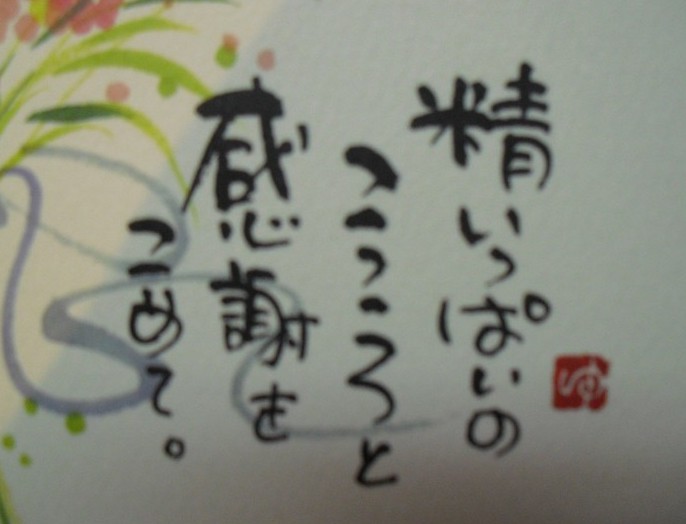 精いっぱいの
こころと
感謝を
こめて。